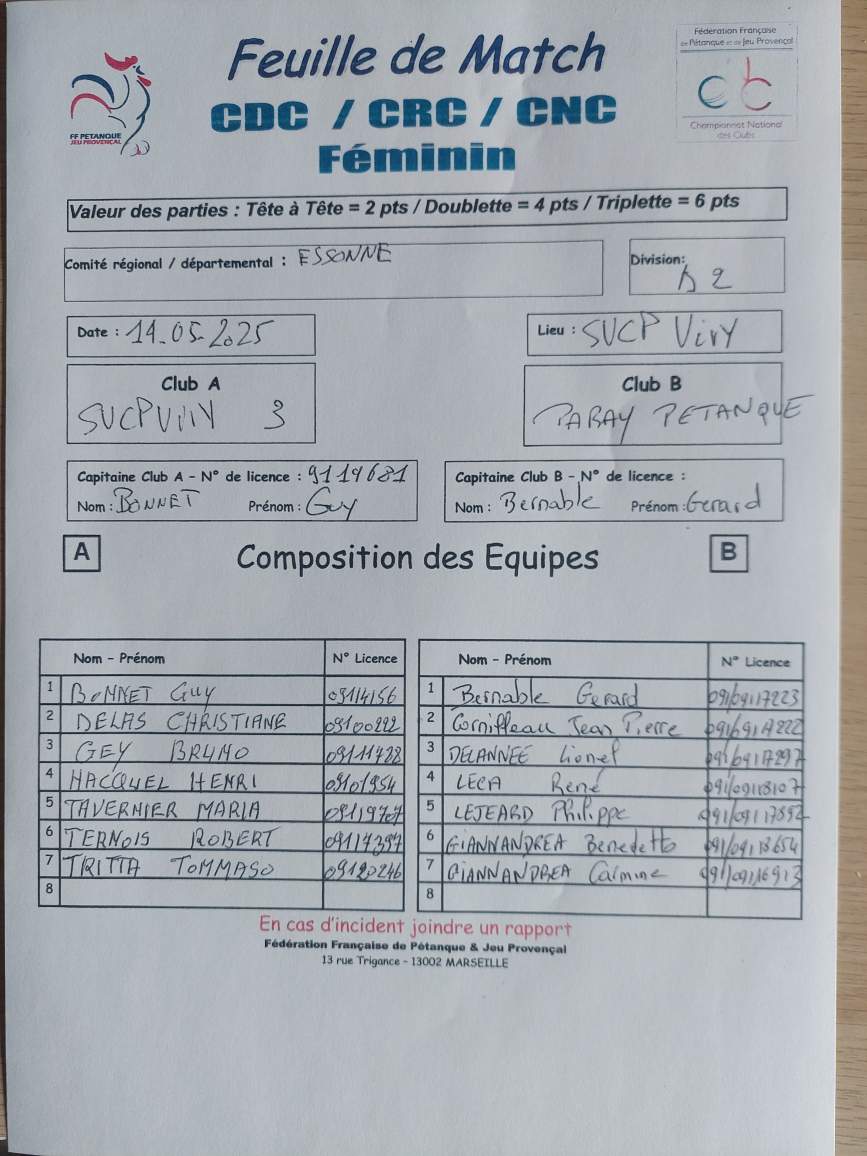 Feuille de Match
CDC / CRC / CNC
Féminin
FF PETANQUE
JEU PROVENÇAL
Fédération Française
de Pétanque et de Jeu Provençal
Championnat National
des Clubs
Valeur des parties : Tête à Tête = 2 pts / Doublette = 4 pts / Triplette = 6 pts
Comité régional / départemental : ESSONNE
Division: D2
Date : 14.05.2025
Lieu : SUCP Viry
Club A
SUCPVIRY 3
Club B
PARAY PETANQUE
Capitaine Club A - N° de licence : 9114681
Nom : BONNET Prénom : Guy
Capitaine Club B - N° de licence :
Nom : Bernable Prénom : Gerard
A Composition des Equipes B
Nom - Prénom N° Licence
1 BONNET Guy 09114156
2 DELAS CHRISTIANE 09100292
3 GEY BRUNO 09111428
4 HACQUEL HENRI 09101954
5 TAVERNIER MARIA
6 TERNOIS ROBERT 09117397
7 TRITTA TOMMASO 09120246
8
Nom - Prénom N° Licence
1 Bernable Gerard 091/09117223
2 Corniffleau Jean Pierre
3 DELANNEE Lionel
4 LECA René 091/09118107
5 LEJEARD Philippe
6 GIANNANDREA Benedetto 091/09113654
7 GIANNANDREA Carmine 091/09116913
8
En cas d'incident joindre un rapport
Fédération Française de Pétanque & Jeu Provençal
13 rue Trigance - 13002 MARSEILLE